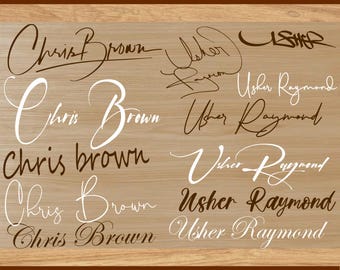 Chris Brown
Chris Brown
Chris brown
Chris Brown
Chris Brown
Usher
Raymond
USHER
Usher Raymond
Usher Raymond
Usher Raymond
Usher Raymond
Usher Raymond